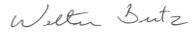 Welten Butz